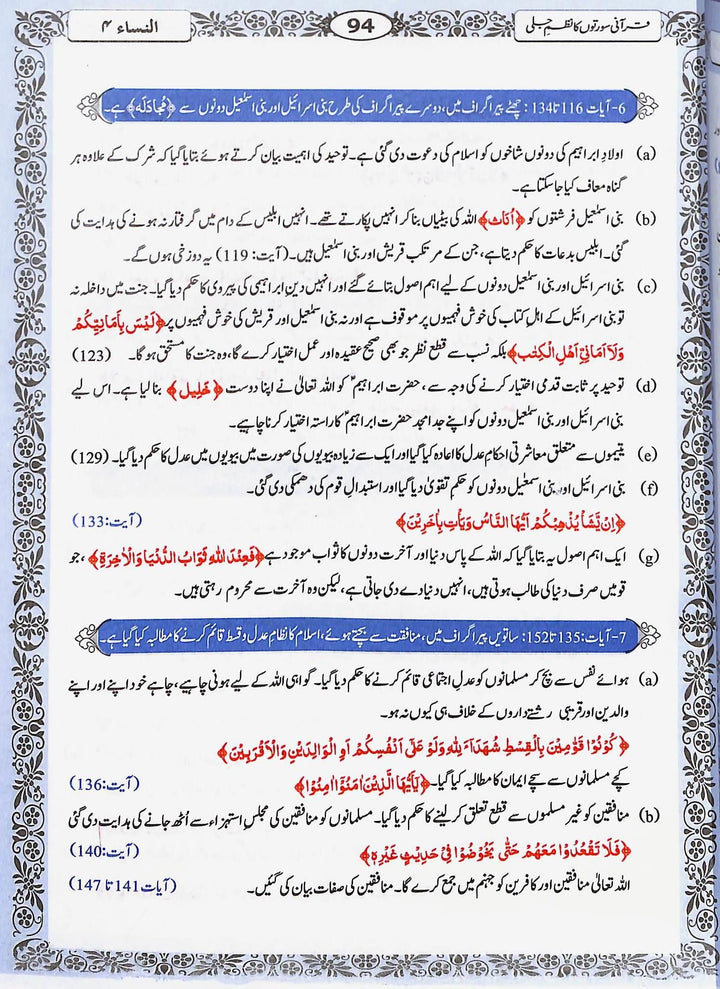 قرآنی سورتوں کا نظمِ جلی
94
النساء ۴
6- آیات 116 تا 134 : چھٹے پیراگراف میں، دوسرے پیراگراف کی طرح بنی اسرائیل اور بنی اسمٰعیل دونوں سے ﴿مُجادَلَہ﴾ ہے۔
(a) اولادِ ابراہیم کی دونوں شاخوں کو اسلام کی دعوت دی گئی ہے۔ توحید کی اہمیت بیان کرتے ہوئے بتایا گیا کہ شرک کے علاوہ ہر
گناہ معاف کیا جاسکتا ہے۔
(b) بنی اسمٰعیل فرشتوں کو ﴿اُنَاث﴾ اللہ کی بیٹیاں بنا کر انہیں پکارتے تھے۔ انہیں ابلیس کے دام میں گرفتار نہ ہونے کی ہدایت کی
گئی۔ ابلیس بدعات کا حکم دیتا ہے، جن کے مرتکب قریش اور بنی اسمٰعیل ہیں۔ (آیت: 119) یہ دوزخی ہوں گے۔
(c) بنی اسرائیل اور بنی اسمٰعیل دونوں کے لیے اہم اصول بتائے گئے اور انہیں دینِ ابراہیمی کی پیروی کا حکم دیا گیا۔ جنت میں داخلہ نہ
تو بنی اسرائیل کے اہلِ کتاب کی خوش فہمیوں پر موقوف ہے اور نہ بنی اسمٰعیل اور قریش کی خوش فہمیوں پر ﴿لَيْسَ بِاَمَانِيِّكُمْ
وَلَآ اَمَانِيِّ اَهْلِ الْكِتٰبِ﴾ بلکہ نسب سے قطع نظر جو بھی صحیح عقیدہ اور عمل اختیار کرے گا، وہ جنت کا مستحق ہوگا۔ (123)
(d) توحید پر ثابت قدمی اختیار کرنے کی وجہ سے، حضرت ابراہیمؑ کو اللہ تعالیٰ نے اپنا دوست ﴿خَلِیل﴾ بنا لیا ہے۔ اس لیے
بنی اسرائیل اور بنی اسمٰعیل دونوں کو اپنے جدِ امجد حضرت ابراہیمؑ کا راستہ اختیار کرنا چاہیے۔
(e) یتیموں سے متعلق معاشرتی احکامِ عدل کا اعادہ کیا گیا اور ایک سے زیادہ بیویوں کی صورت میں بیویوں میں عدل کا حکم دیا گیا۔ (129)
(f) بنی اسرائیل اور بنی اسمٰعیل دونوں کو حکمِ تقویٰ دیا گیا اور استبدالِ قوم کی دھمکی دی گئی۔
﴿اِنْ يَّشَاْ يُذْهِبْكُمْ اَيُّهَا النَّاسُ وَيَاْتِ بِاٰخَرِيْنَ﴾ (آیت:133)
(g) ایک اہم اصول یہ بتایا گیا کہ اللہ کے پاس دنیا اور آخرت دونوں کا ثواب موجود ہے ﴿فَعِنْدَ اللّٰهِ ثَوَابُ الدُّنْيَا وَالْاٰخِرَةِ﴾، جو
قومیں صرف دنیا کی طالب ہوتی ہیں، انہیں دنیا دے دی جاتی ہے، لیکن وہ آخرت سے محروم رہتی ہیں۔
7- آیات:135 تا 152: ساتویں پیراگراف میں، منافقت سے بچتے ہوئے، اسلام کا نظامِ عدل و قسط قائم کرنے کا مطالبہ کیا گیا ہے۔
(a) ہوائے نفس سے بچ کر مسلمانوں کو عدلِ اجتماعی قائم کرنے کا حکم دیا گیا۔ گواہی اللہ کے لیے ہونی چاہیے، چاہے خود اپنے اور اپنے
والدین اور قریبی رشتے داروں کے خلاف ہی کیوں نہ ہو۔
﴿كُوْنُوْا قَوّٰمِيْنَ بِالْقِسْطِ شُهَدَآءَ لِلّٰهِ وَلَوْ عَلٰٓى اَنْفُسِكُمْ اَوِ الْوَالِدَيْنِ وَالْاَقْرَبِيْنَ﴾
کچے مسلمانوں سے سچے ایمان کا مطالبہ کیا گیا۔ ﴿يٰٓاَيُّهَا الَّذِيْنَ اٰمَنُوْٓا اٰمِنُوْا﴾ (آیت:136)
(b) منافقین کو غیر مسلموں سے قطع تعلق کر لینے کا حکم دیا گیا۔ مسلمانوں کو منافقین کی مجلسِ استہزاء سے اُٹھ جانے کی ہدایت دی گئی
﴿فَلَا تَقْعُدُوْا مَعَهُمْ حَتّٰى يَخُوْضُوْا فِيْ حَدِيْثٍ غَيْرِهٖ﴾ (آیت:140)
اللہ تعالیٰ منافقین اور کافرین کو جہنم میں جمع کرے گا۔ منافقین کی صفات بیان کی گئیں۔ (آیات 141 تا 147)